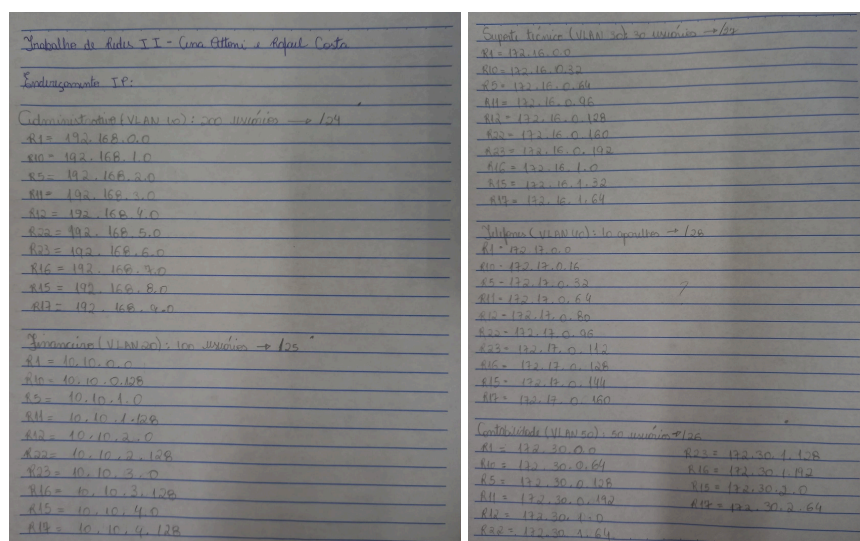 Trabalho de Redes II - Ana Ottoni e Rafael Costa
Endereçamento IP:
Administrativo (VLAN 10): 200 usuários → /24
R1 = 192.168.0.0
R10 = 192.168.1.0
R5 = 192.168.2.0
R11 = 192.168.3.0
R12 = 192.168.4.0
R22 = 192.168.5.0
R23 = 192.168.6.0
R16 = 192.168.7.0
R15 = 192.168.8.0
R17 = 192.168.9.0
Financeiro (VLAN 20): 100 usuários → /25
R1 = 10.10.0.0
R10 = 10.10.0.128
R5 = 10.10.1.0
R11 = 10.10.1.128
R12 = 10.10.2.0
R22 = 10.10.2.128
R23 = 10.10.3.0
R16 = 10.10.3.128
R15 = 10.10.4.0
R17 = 10.10.4.128
Suporte técnico (VLAN 30): 30 usuários → /27
R1 = 172.16.0.0
R10 = 172.16.0.32
R5 = 172.16.0.64
R11 = 172.16.0.96
R12 = 172.16.0.128
R22 = 172.16.0.160
R23 = 172.16.0.192
R16 = 172.16.1.0
R15 = 172.16.1.32
R17 = 172.16.1.64
Telefones (VLAN 40): 10 aparelhos → /28
R1 = 172.17.0.0
R10 = 172.17.0.16
R5 = 172.17.0.32
R11 = 172.17.0.64
R12 = 172.17.0.80
R22 = 172.17.0.96
R23 = 172.17.0.112
R16 = 172.17.0.128
R15 = 172.17.0.144
R17 = 172.17.0.160
Contabilidade (VLAN 50): 50 usuários → /26
R1 = 172.30.0.0
R10 = 172.30.0.64
R5 = 172.30.0.128
R11 = 172.30.0.192
R12 = 172.30.1.0
R22 = 172.30.1.64
R23 = 172.30.1.128
R16 = 172.30.1.192
R15 = 172.30.2.0
R17 = 172.30.2.64